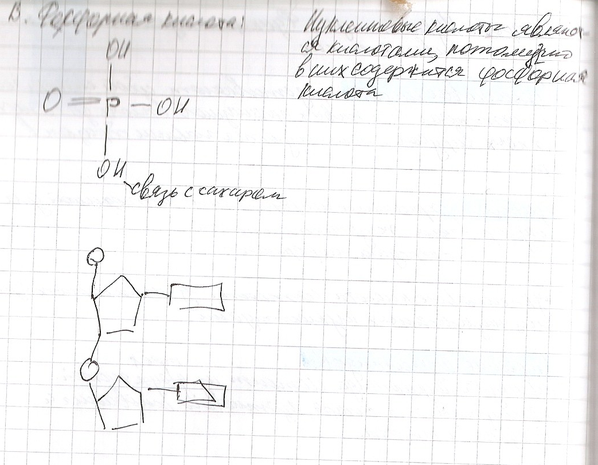 В. Фосфорная кислота:
OH
O=P-OH
OH
связь с сахаром
Нуклеиновые кислоты являют-
ся кислотами, потому что
в них содержится фосфорная
кислота